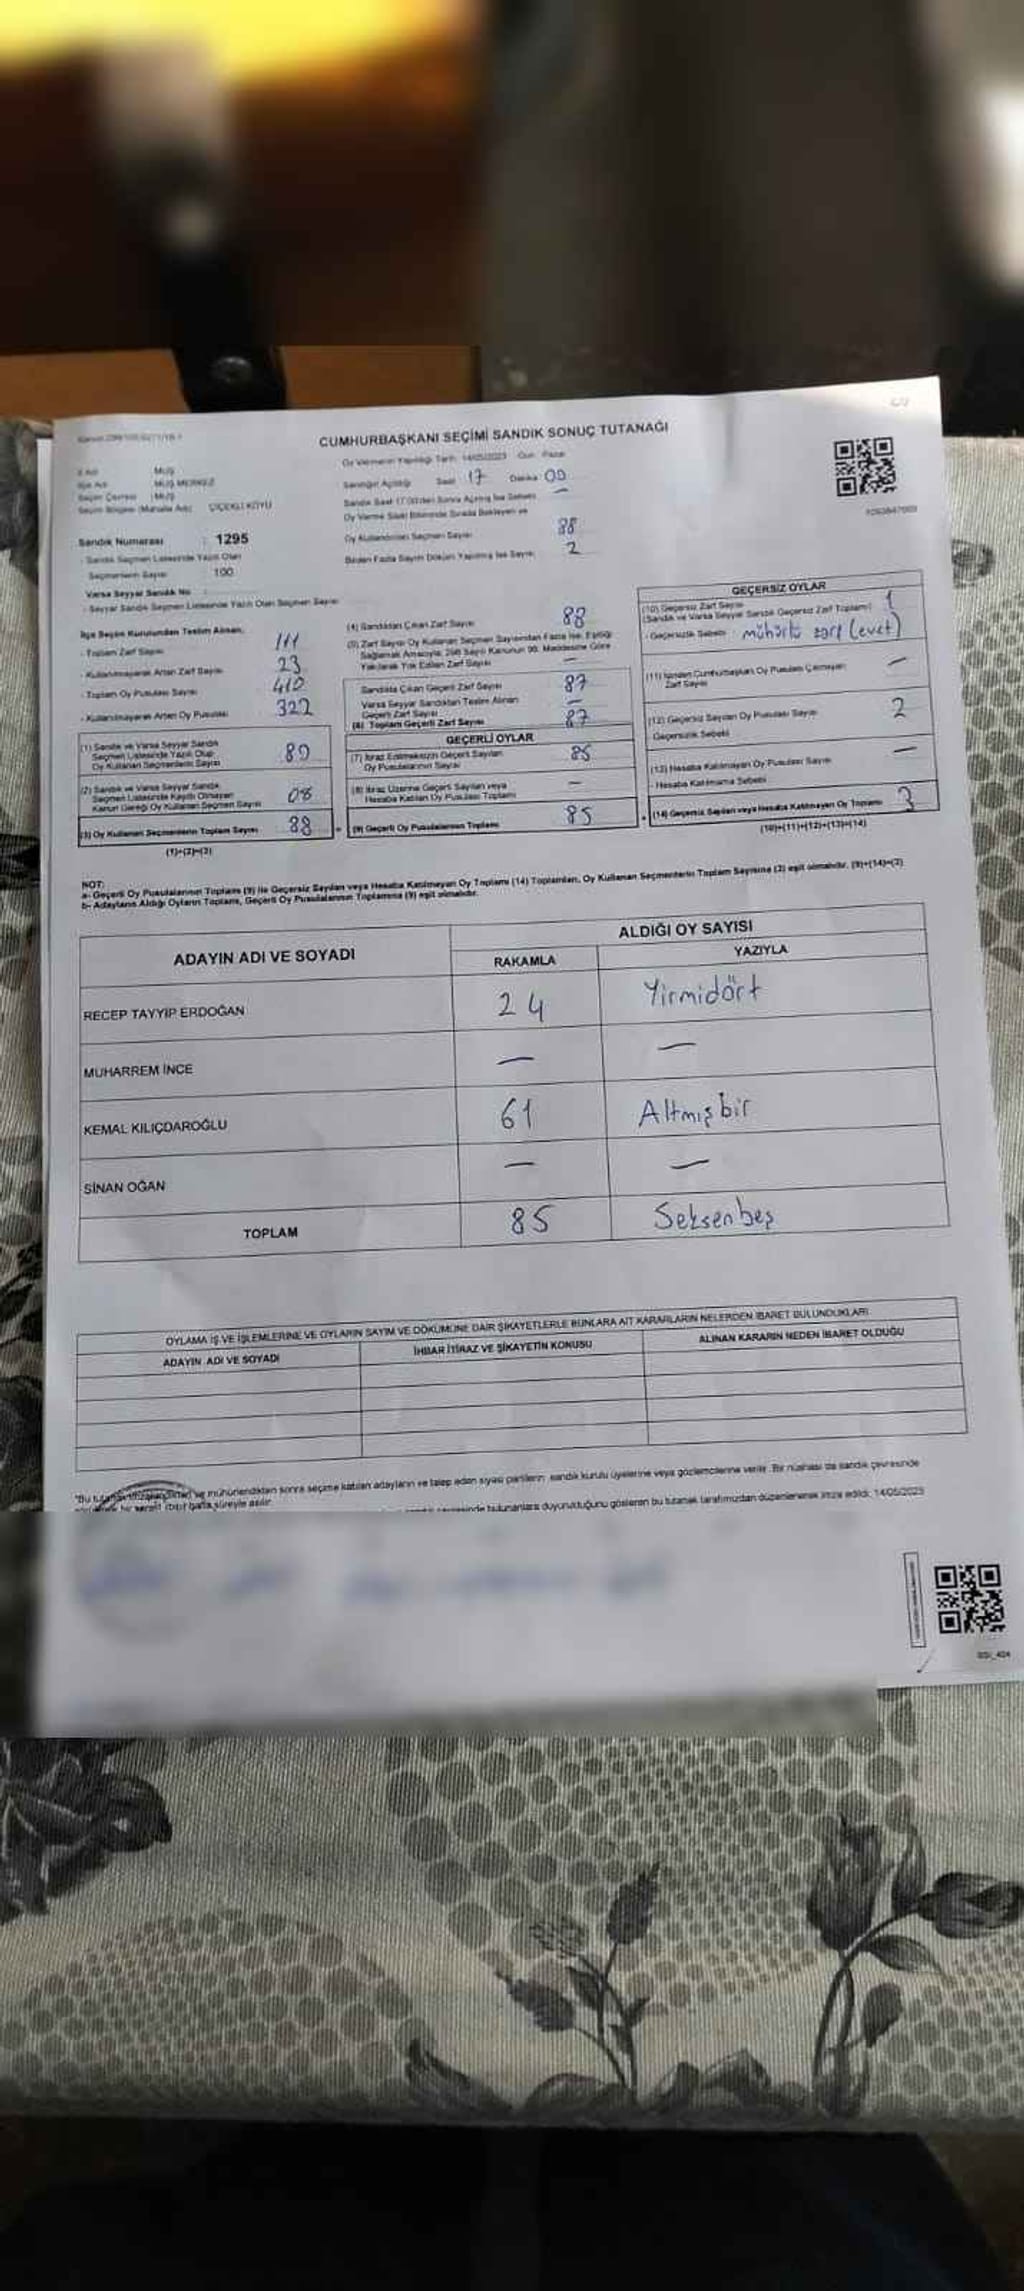 CUMHURBAŞKANI SEÇİMİ SANDIK SONUÇ TUTANAĞI
Oy Vermenin Yapıldığı Tarih 14/05/2023 Gün Pazar
İl Adı MUŞ
İlçe Adı MUŞ MERKEZ
Seçim Çevresi MUŞ
Seçim Bölgesi (Mahalle Adı) ÇİÇEKLİ KÖYÜ
Sandık Numarası : 1295
Sandık Seçmen Listesinde Yazılı Olan
Seçmenlerin Sayısı 100
Varsa Seyyar Sandık No
- Seyyar Sandık Seçmen Listesinde Yazılı Olan Seçmen Sayısı
Sandığın Açıldığı Saat 17 Dakika 00
Sandık Saat 17.00'den Sonra Açılmış İse Sebebi —
Oy Verme Saati Bitiminde Sırada Bekleyen ve
Oy Kullandırılan Seçmen Sayısı 88
Birden Fazla Sayım Döküm Yapılmış İse Sayısı 2
İlçe Seçim Kurulundan Teslim Alınan,
- Toplam Zarf Sayısı 111
- Kullanılmayarak Artan Zarf Sayısı 23
- Toplam Oy Pusulası Sayısı 410
- Kullanılmayarak Artan Oy Pusulası 322
(1) Sandık ve Varsa Seyyar Sandık
Seçmen Listesinde Yazılı Olup
Oy Kullanan Seçmenlerin Sayısı 80
(2) Sandık ve Varsa Seyyar Sandık
Seçmen Listesinde Kayıtlı Olmayan
Kanun Gereği Oy Kullanan Seçmen Sayısı 08
(3) Oy Kullanan Seçmenlerin Toplam Sayısı 88
(1)+(2)=(3)
(4) Sandıktan Çıkan Zarf Sayısı 88
(5) Zarf Sayısı Oy Kullanan Seçmen Sayısından Fazla İse, Eşitliği
Sağlamak Amacıyla, 298 Sayılı Kanunun 98. Maddesine Göre
Yakılarak Yok Edilen Zarf Sayısı —
Sandıkta Çıkan Geçerli Zarf Sayısı 87
Varsa Seyyar Sandıktan Teslim Alınan
Geçerli Zarf Sayısı —
(6) Toplam Geçerli Zarf Sayısı 87
GEÇERLİ OYLAR
(7) İtiraz Edilmeksizin Geçerli Sayılan
Oy Pusulalarının Sayısı 85
(8) İtiraz Üzerine Geçerli Sayılan veya
Hesaba Katılan Oy Pusulası Toplamı —
(9) Geçerli Oy Pusulalarının Toplamı 85
GEÇERSİZ OYLAR
(10) Geçersiz Zarf Sayısı 1
(Sandık ve Varsa Seyyar Sandık Geçersiz Zarf Toplamı)
- Geçersizlik Sebebi mühürlü zarf (evet)
(11) İçinden Cumhurbaşkanı Oy Pusulası Çıkmayan
Zarf Sayısı —
(12) Geçersiz Sayılan Oy Pusulası Sayısı 2
Geçersizlik Sebebi
(13) Hesaba Katılmayan Oy Pusulası Sayısı —
- Hesaba Katılmama Sebebi
(14) Geçersiz Sayılan veya Hesaba Katılmayan Oy Toplamı 3
(10)+(11)+(12)+(13)=(14)
NOT:
a- Geçerli Oy Pusulalarının Toplamı (9) ile Geçersiz Sayılan veya Hesaba Katılmayan Oy Toplamı (14) Toplamları, Oy Kullanan Seçmenlerin Toplam Sayısına (3) eşit olmalıdır. (9)+(14)=(3)
b- Adayların Aldığı Oyların Toplamı, Geçerli Oy Pusulalarının Toplamına (9) eşit olmalıdır.
ADAYIN ADI VE SOYADI ALDIĞI OY SAYISI
RAKAMLA YAZIYLA
RECEP TAYYİP ERDOĞAN 24 Yirmidört
MUHARREM İNCE — —
KEMAL KILIÇDAROĞLU 61 Altmışbir
SİNAN OĞAN — —
TOPLAM 85 Seksenbeş
OYLAMA İŞ VE İŞLEMLERİNE VE OYLARIN SAYIM VE DÖKÜMÜNE DAİR ŞİKAYETLERLE BUNLARA AİT KARARLARIN NELERDEN İBARET BULUNDUKLARI
ADAYIN ADI VE SOYADI İHBAR İTİRAZ VE ŞİKAYETİN KONUSU ALINAN KARARIN NEDEN İBARET OLDUĞU
mühürlendikten sonra seçime katılan adayların ve talep eden siyasi partilerin sandık kurulu üyelerine veya gözlemcilerine verilir. Bir nüshası da sandık çevresinde
bir hafta süreyle asılır.
bulunanlara duyurulduğunu gösteren bu tutanak tarafımızdan düzenlenerek imza edildi. 14/05/2023